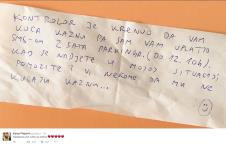 KONTROLOR JE KRENUO DA VAM
KUCA KAZNU PA SAM VAM UPLATIO
SMS-OM 2 SATA PARKINGA. (DO 12.10h).
KAD SE NADJETE U MOJOJ SITUACIJI
POMOZITE I VI NEKOME DA MU NE
KUCAJU KAZNU...